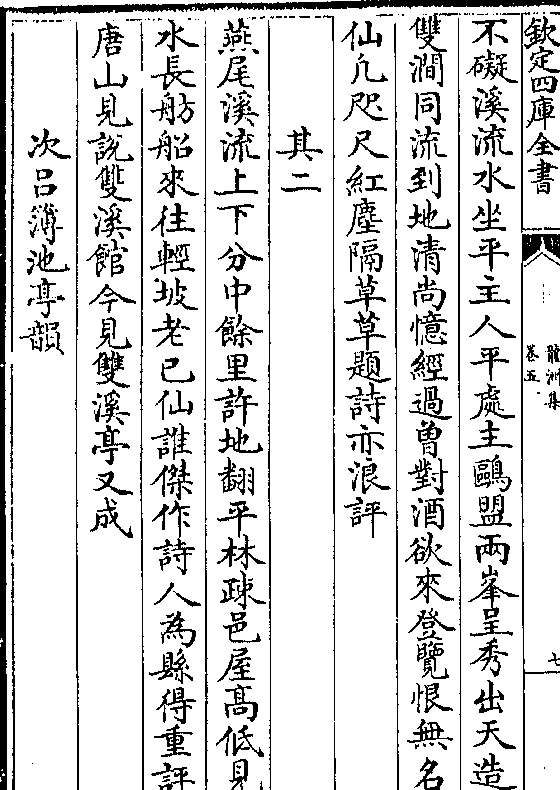 欽定四庫全書
龍洲集
卷五
七
不礙溪流水坐平主人平處主鷗盟兩峯呈秀出天造
雙澗同流到地清尚憶經過曾對酒欲來登覽恨無名
仙凡咫尺紅塵隔草草題詩亦浪評
其二
燕尾溪流上下分中餘里許地翻平林疎邑屋高低見
水長舫船來往輕坡老已仙誰傑作詩人為縣得重評
唐山見說雙溪館今見雙溪亭又成
次呂簿池亭韻